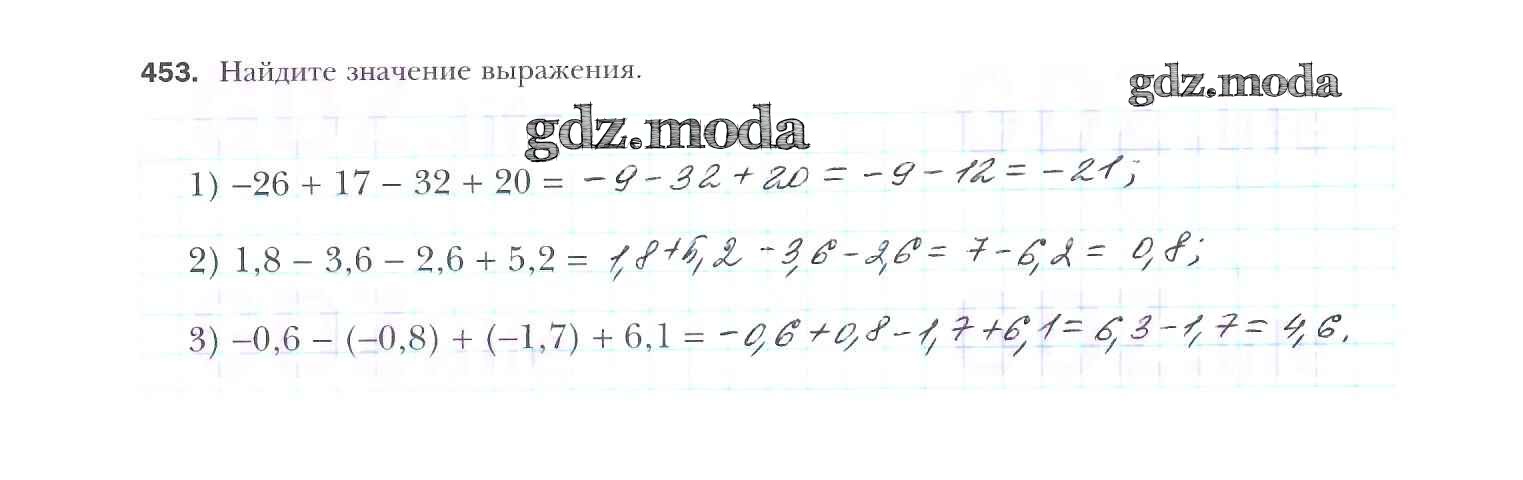 453. Найдите значение выражения.
gdz.moda
gdz.moda
1) –26 + 17 – 32 + 20 = –9–32+20 = –9–12 = –21;
2) 1,8 – 3,6 – 2,6 + 5,2 = 1,8+5,2 –3,6–2,6 = 7–6,2 = 0,8;
3) –0,6 – (–0,8) + (–1,7) + 6,1 = –0,6+0,8–1,7+6,1= 6,3–1,7= 4,6.